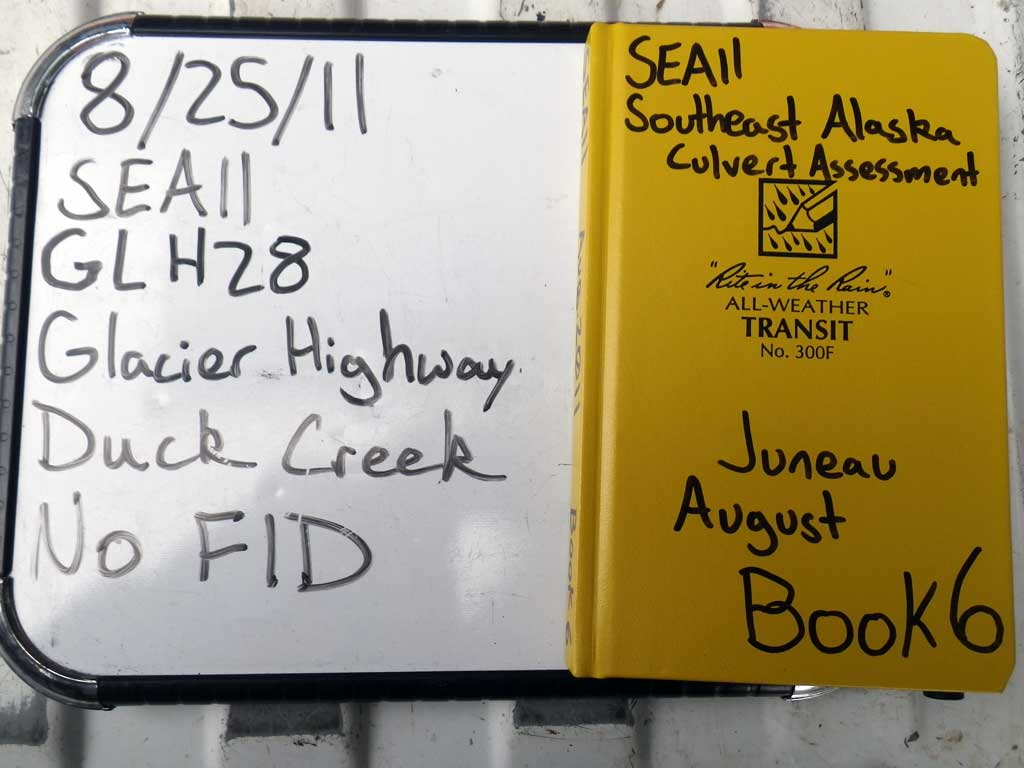 8/25/11
SEA11
GLH28
Glacier Highway
Duck Creek
No FID
SEA11
Southeast Alaska
Culvert Assessment
"Rite in the Rain"®
ALL-WEATHER
TRANSIT
No. 300F
Juneau
August
Book 6